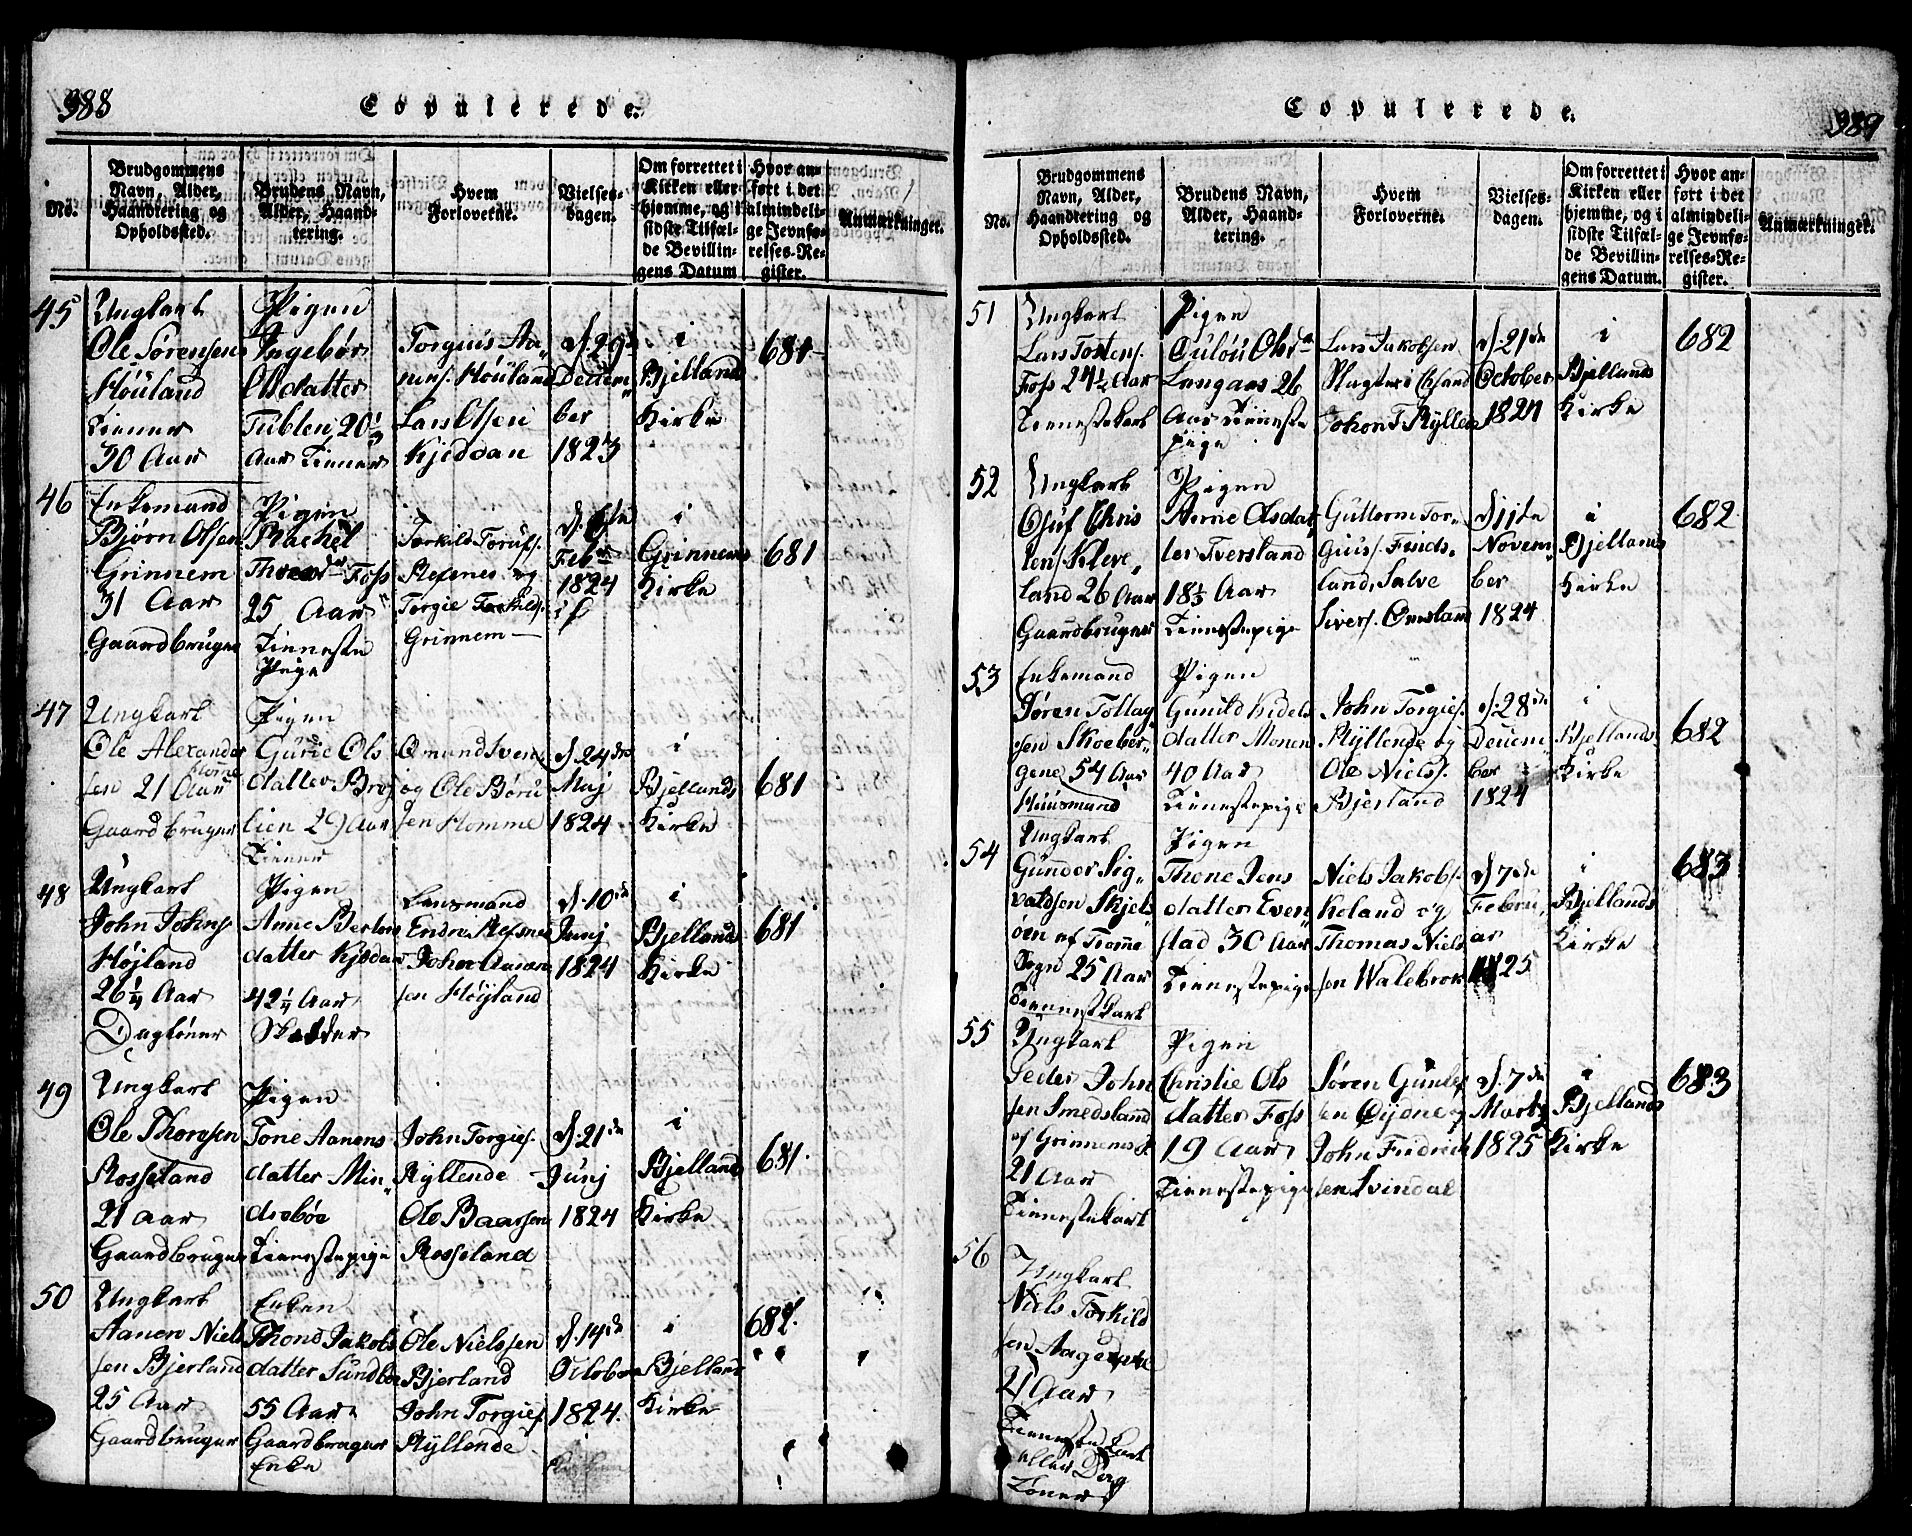 388
Copulerede.
No.
Brudgommens
Navn, Alder,
Haandtering og
Opholdssted.
Brudens Navn,
Alder, Haand-
tering.
Hvem
Forloverne.
Vielses-
dagen.
Om forrettet i
Kirken eller
hjemme, og i
sidste Tilfæl-
de Bevillin-
gens Datum
Hvor an-
ført i det
almindeli-
ge Jevnfø-
relses-Re-
gister.
Anmærkninger.
45
Ungkarl
Ole Sörensen
Höuland
Tiener
30 Aar
Pigen
Ingebör
Elsdatter
20 1/2
Aar Tiener
Torgius Aa„
nens. Höuland
Lars Olsen
Kjeddan
d. 29de
Decem„
ber
1823
i
Bjelland
Kirke
681
46
Enkemand
Björn Olsen
Grinnem
31 Aar
Gaardbruger
Pigen
Rachel
Foss
25 Aar
Tieneste
Pige
Torkild
Refsnes og
Torgie Torkilds.
Grinnem
Feb
1824
i
Grinnems
Kirke
681
47
Ungkarl
Ole Alexander
sen 21 Aar
Gaardbruger
Pigen
Gurie Ols
datter Brej
lien 29 Aar
Tiener
Omund Iven
og Ole Böru
sen Homme
d. 24de
Maj
1824
i
Bjellands
Kirke
681
48
Ungkarl
John Johns
Höjland
26 1/4 Aar
Daglöner
Pigen
Anne Berten
datter Kjedan
42 1/4 Aar
Lensmand
Endre Refsnes
sen Höyland
d. 10de
Junj
1824
i
Bjelland
Kirke
681
49
Ungkarl
Ole Thoresen
Rosseland
21 Aar
Gaardbruger
Pigen
Tone Aanens
datter Min„
drebøe
Tienestepige
John Torgies.
Ryllende
Ole Baarsen
Rosseland
d. 21de
Junj
1824
i
Bjelland
Kirke
681.
50
Ungkarl
Aanen Niels
sen Bjerland
25 Aar
Gaardbruger
Enken
Thone Jakobs
datter Sundber
55 Aar
Gaardbruger
Enke
Ole Nielssen
Bjerland
John Torgies.
Ryllende
d. 14de
October
1824.
i
Bjelland
Kirke
682.
Copulerede.
389
No.
Brudgommens
Navn, Alder,
Haandtering og
Opholdssted.
Brudens Navn,
Alder, Haand-
tering.
Hvem
Forloverne.
Vielses-
dagen.
Om forrettet i
Kirken eller
hjemme, og i
sidste Tilfæl-
de Bevillin-
gens Datum.
Hvor an-
ført i det
almindeli-
ge Jevnfø-
relses-Re-
gister.
Anmærkninger.
51
Ungkarl
Lars Tostens.
Foss 24 1/2 Aar
Tienestekarl
Pigen
Olsdr
26
Aar Tieneste
pige
Lars Jakobsen
John T Rylle
d. 21de
October
1824
i
Bjelland
Kirke
682
52
Ungkarl
Oluf Chris
tens. Kleve„
land 26 Aar
Gaardbruger
Pigen
Anne Olsdat
ter Tversland
18 1/2 Aar
Tienestepige
Gutterm Tor„
gius. Finds„
land, Salve
Sivers. Omsland
d. 11te
Novem„
ber
1824
i
Bjellands
Kirke
682
53
Enkemand
Sören Tollag
sen Skoeber„
gene 54 Aar
Huusmand
Pigen
Gunild Kidels
datter Monen
40 Aar
Tienestepige
John Torgies.
Ryllende og
Ole Niels.
Bjerland
d. 28de
Decem
ber
1824
i
Bjellands
Kirke
682
54
Ungkarl
Gunder Sig„
valdsen Skjels
öen af Tromme
Sogn 25 Aar
Tienestkarl
Pigen
Thone Jens
datter Even
stad 30 Aar
Tienestepige
Niels Jakobs.
Roland og
Thomas Niels
sen Walebrok
d. 7de
Febru„
ar
1825
i
Bjellands
Kirke
683
55
Ungkarl
Peder John
sen Smedsland
af Grinnems S.
21 Aar
Tienestekarl
Pigen
Christie Ols
datter Foss
19 Aar
Tienestepige
Sören Gunles
sen Öydne og
John Fredrich
sen Svindal
d. 7de
Marty
1825
i
Bjellands
Kirke
683
56
Ungkarl
Niels Torkild
sen
21 Aar
Tieneste Karl
eller Dag
Löner